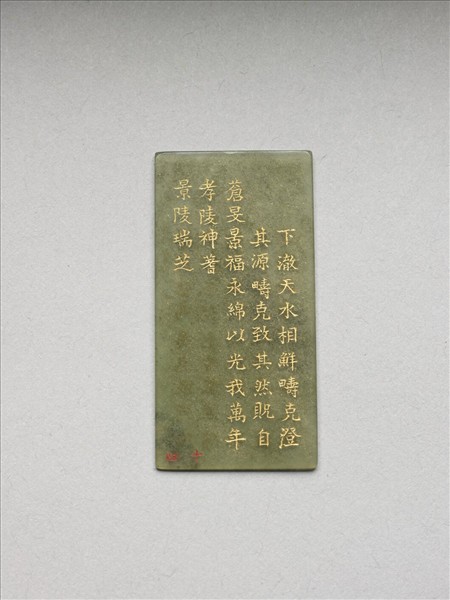 下澈天水相鮮疇克澄
其源疇克致其然貺自
蒼旻景福永綿以光我萬年
孝陵神蓍
景陵瑞芝